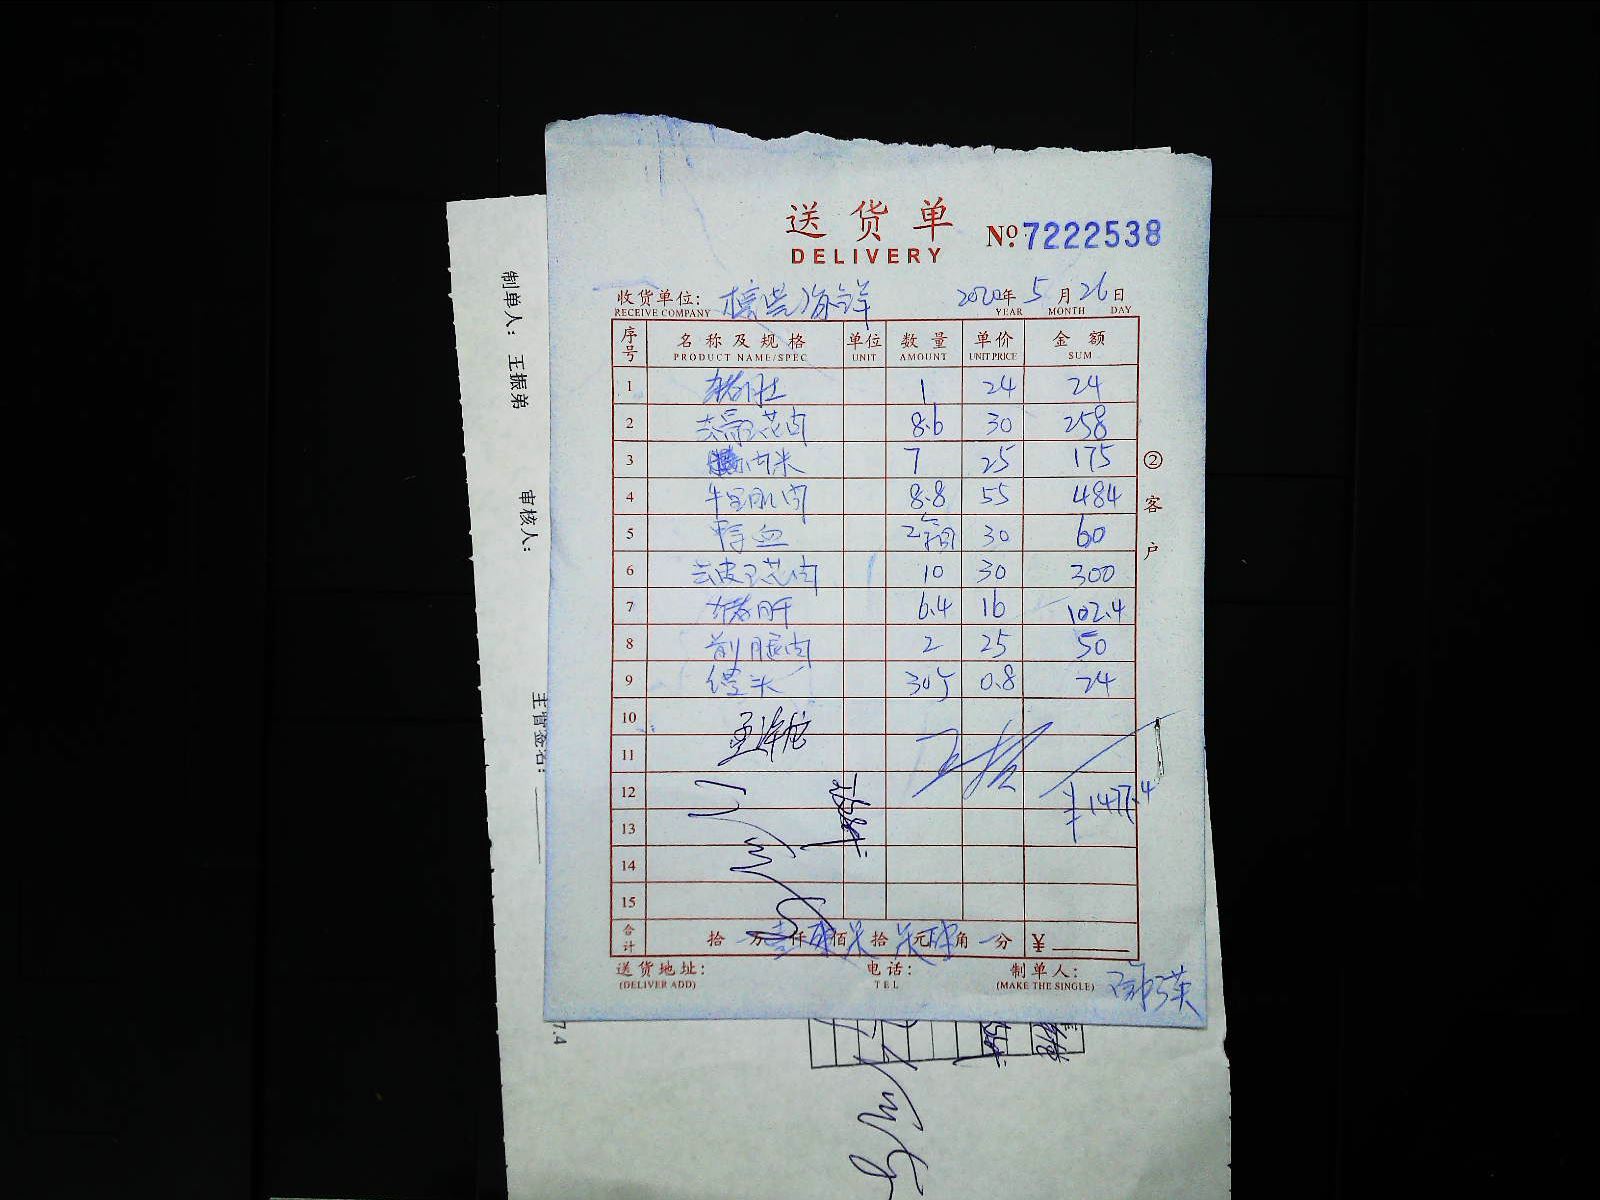 送货单
DELIVERY
№ 7222538
收货单位: 海鲜 2020年 5月 26日
RECEIVE COMPANY YEAR MONTH DAY
序号 名称及规格 单位 数量 单价 金额
PRODUCT NAME/SPEC UNIT AMOUNT UNIT PRICE SUM
1 猪肚 1 24 24
2 去骨五花肉 8.6 30 258
3 肉米 7 25 175
4 牛里肌肉 8.8 55 484
5 鸭血 2箱 30 60
6 去皮五花肉 10 30 300
7 猪肝 6.4 16 102.4
8 前腿肉 2 25 50
9 馒头 30个 0.8 24
10
11
12 ¥1477.4
13
14
15
合计 拾 万壹仟肆佰柒拾柒元肆角 分 ¥
送货地址: 电话: 制单人:
(DELIVER ADD) TEL (MAKE THE SINGLE)
②客户
制单人: 王振弟 审核人: 主管签名:
7.4